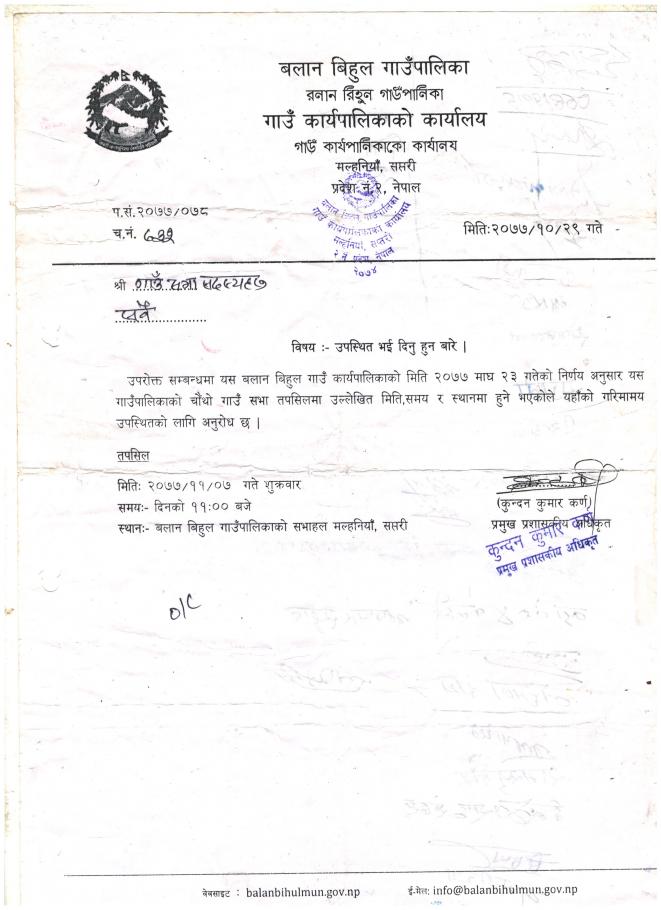 बलान बिहुल गाउँपालिका
गाउँ कार्यपालिकाको कार्यालय
मल्हनियाँ, सप्तरी
प्रदेश नं २, नेपाल
बलान बिहुल गाउँपालिका
गाउँ कार्यपालिकाको कार्यालय
मल्हनियाँ, सप्तरी
२ नं प्रदेश, नेपाल
२०७४
प.सं.२०७७/०७८
च.नं.
मिति:२०७७/१०/२९ गते
श्री गाउँ सभा सदस्यहरु
सबै
विषय :- उपस्थित भई दिनु हुन बारे |
उपरोक्त सम्बन्धमा यस बलान बिहुल गाउँ कार्यपालिकाको मिति २०७७ माघ २३ गतेको निर्णय अनुसार यस
गाउँपालिकाको चौथो गाउँ सभा तपसिलमा उल्लेखित मिति,समय र स्थानमा हुने भएकोले यहाँको गरिमामय
उपस्थितको लागि अनुरोध छ |
तपसिल
मितिः २०७७/११/०७ गते शुक्रवार
समयः- दिनको ११:०० बजे
स्थानः- बलान बिहुल गाउँपालिकाको सभाहल मल्हनियाँ, सप्तरी
(कुन्दन कुमार कर्ण)
प्रमुख प्रशासकीय अधिकृत
कुन्दन कुमार कर्ण
प्रमुख प्रशासकीय अधिकृत
O/C
वेबसाइट : balanbihulmun.gov.np
ई-मेल: info@balanbihulmun.gov.np